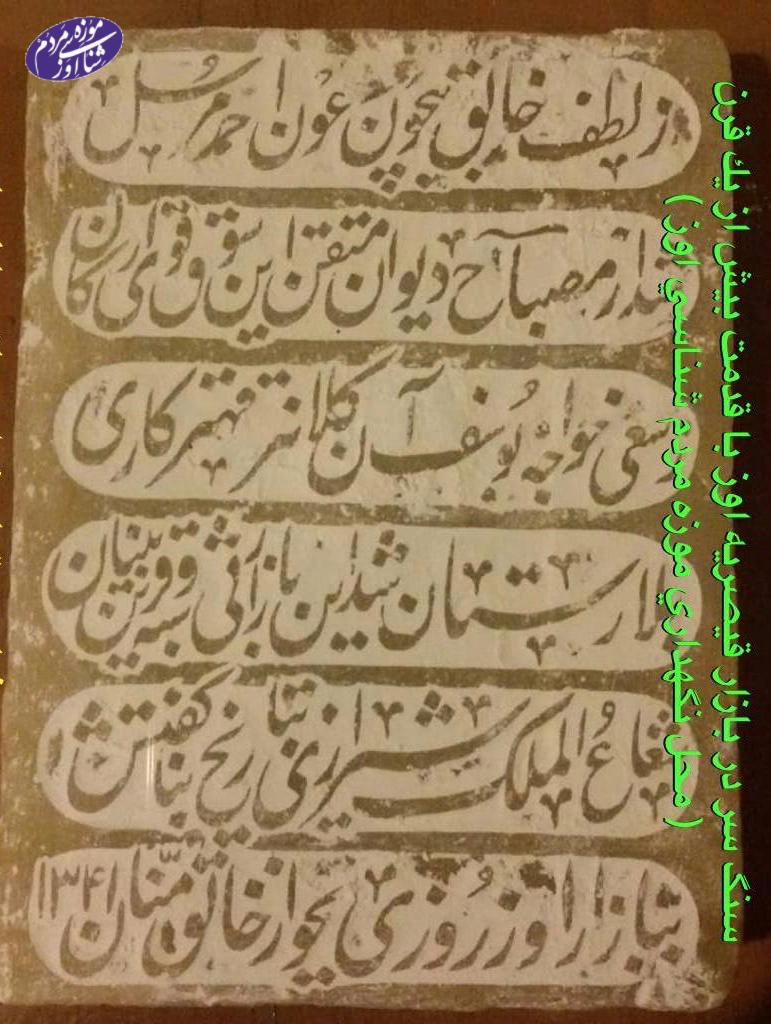 موزه ی مردم شناسی اوز
ز لطف خالق بیچون عون احمد مرسل
شد از مصباح دیوان متقن این سوق و قوی ارکان
سعی خواجه یوسف آن کلانتر قهستر کاری
لارستان شد این بازار ثی سبه و قرین بنیان
شعاع الملک شیرازی بتاریخ بنا گفتش
ببازار اوز روزی بجو از خالق منان ۱۳۴۱
سنگ سر در بازار قیصریه اوز با قدمت بیش از یك قرن
( محل نگهداري موزه مردم شناسي اوز )